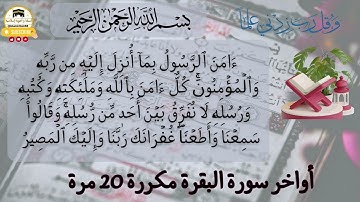 وَقُل رَّبِّ زِدْنِي عِلْمًا
بِسْمِ اللَّهِ الرَّحْمَٰنِ الرَّحِيمِ
ءَامَنَ ٱلرَّسُولُ بِمَآ أُنزِلَ إِلَيْهِ مِن رَّبِّهِۦ
وَٱلْمُؤْمِنُونَۚ كُلٌّ ءَامَنَ بِٱللَّهِ وَمَلَٰٓئِكَتِهِۦ وَكُتُبِهِۦ
وَرُسُلِهِۦ لَا نُفَرِّقُ بَيْنَ أَحَدٍ مِّن رُّسُلِهِۦۚ وَقَالُوا۟
سَمِعْنَا وَأَطَعْنَاۖ غُفْرَانَكَ رَبَّنَا وَإِلَيْكَ ٱلْمَصِيرُ
أواخر سورة البقرة مكررة 20 مرة